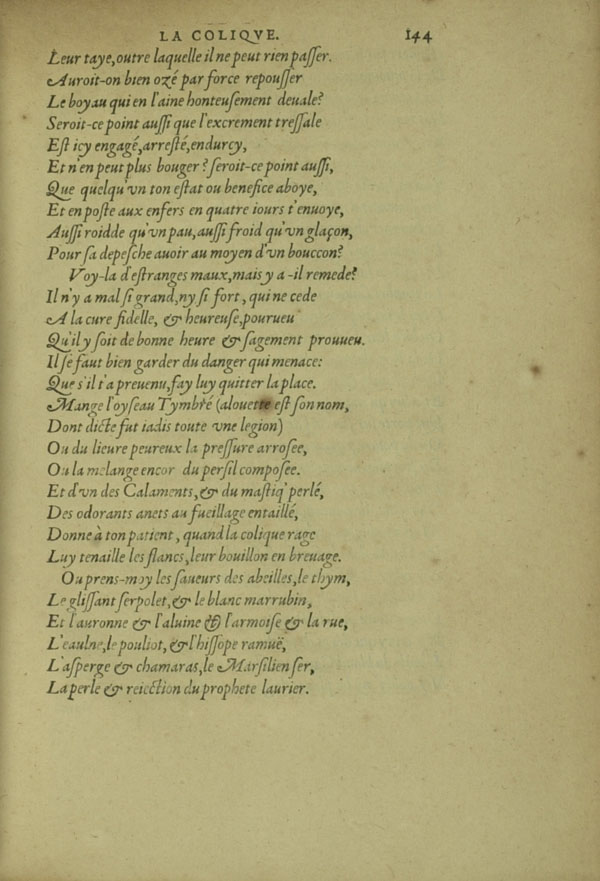 LA COLIQVE. 144
Leur taye, outre laquelle il ne peut rien paſſer.
Auroit-on bien ozé par force repouſſer
Le boyau qui en l'aine honteuſement deuale?
Seroit-ce point auſſi que l'excrement treſſale
Eſt icy engagé, arreſté, endurcy,
Et n'en peut plus bouger? ſeroit-ce point auſſi,
Que quelqu'vn ton eſtat ou benefice aboye,
Et en poſte aux enfers en quatre iours t'enuoye,
Auſſi roidde qu'vn pau, auſſi froid qu'vn glaçon,
Pour ſa depeſche auoir au moyen d'vn bouccon?
Voy-la d'eſtranges maux, mais y a-il remede?
Il n'y a mal ſi grand, ny ſi fort, qui ne cede
A la cure fidelle, & heureuſe, pourueu
Qu'il y ſoit de bonne heure & ſagement prouueu.
Il ſe faut bien garder du danger qui menace:
Que s'il t'a preuenu, fay luy quitter la place.
Mange l'oyſeau Tymbré (alouette eſt ſon nom,
Dont dicte fut iadis toute vne legion)
Ou du lieure peureux la preſſure arroſee,
Ou la melange encor du perſil compoſee.
Et d'vn des Calaments, & du maſtiq' perlé,
Des odorants anets au fueillage entaillé,
Donne à ton patient, quand la colique rage
Luy tenaille les flancs, leur bouillon en breuage.
Ou prens-moy les ſaueurs des abeilles, le thym,
Le gliſſant ſerpolet, & le blanc marrubin,
Et l'auronne & l'aluine & l'armoiſe & la rue,
L'eaulne, le pouliot, & l'hiſſope ramuë,
L'aſperge & chamaras, le Marſilien ſer,
La perle & reiection du prophete laurier.